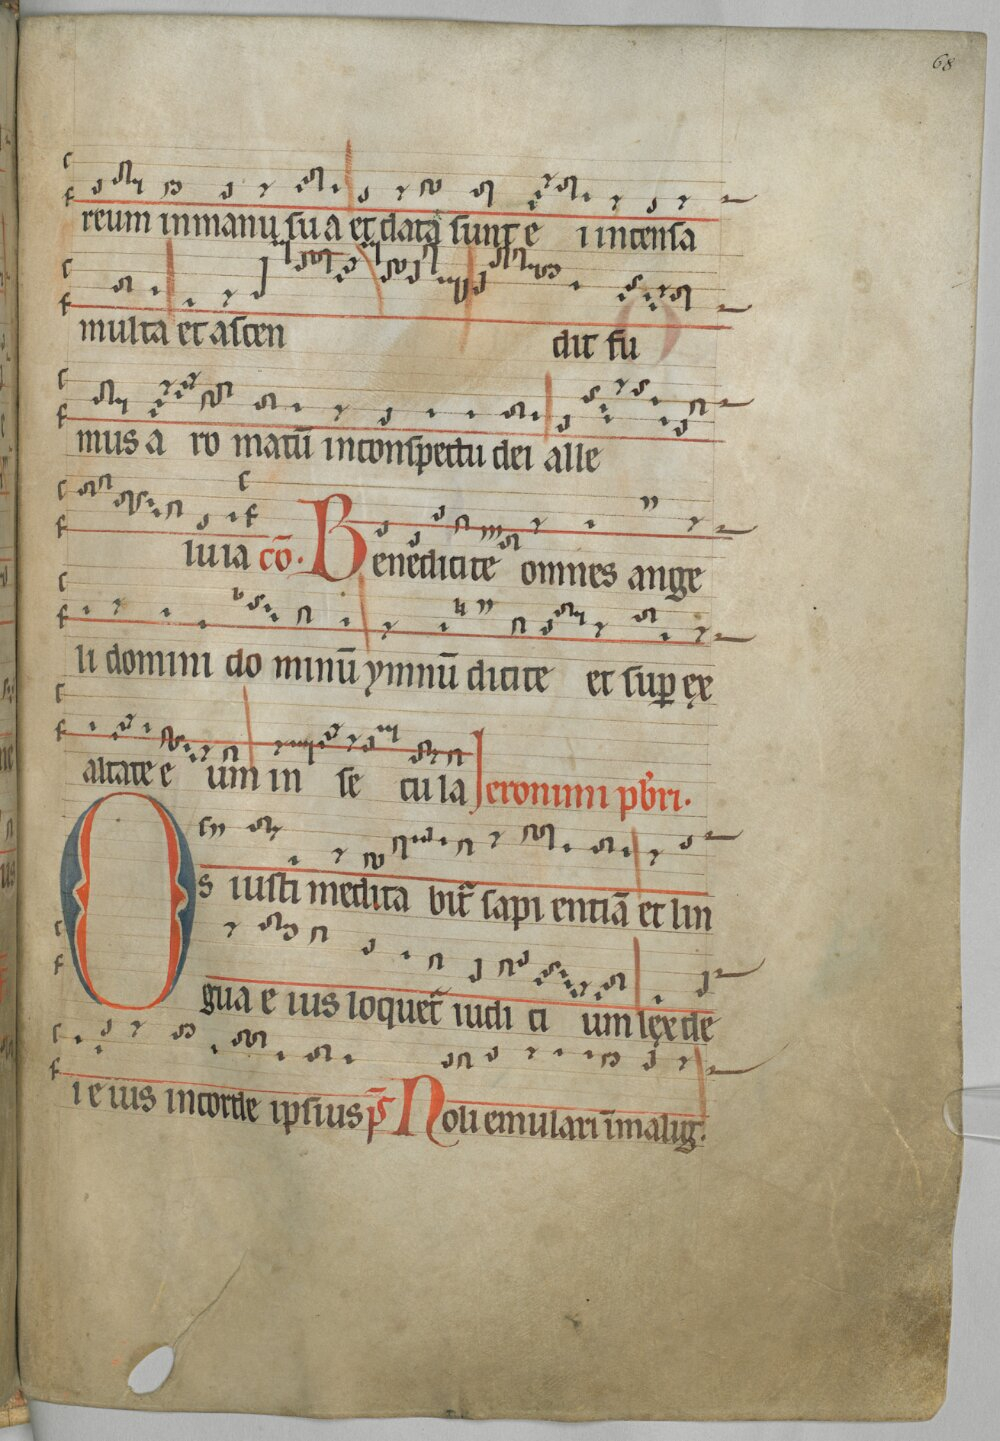 68
reum in manu sua et data sunt e i incensa
multa et ascen dit fu
mus a ro matū in conspectu dei alle
luia cō. Benedicite omnes ange
li domini do minū ymnū dicite et sup ex
altate e um in se cula Jeronimi pbri.
Os iusti medita bit sapi entiā et lin
gua e ius loquet iudi ci um lex de
i e ius in corde ipsius ps Noli emulari ī malig.